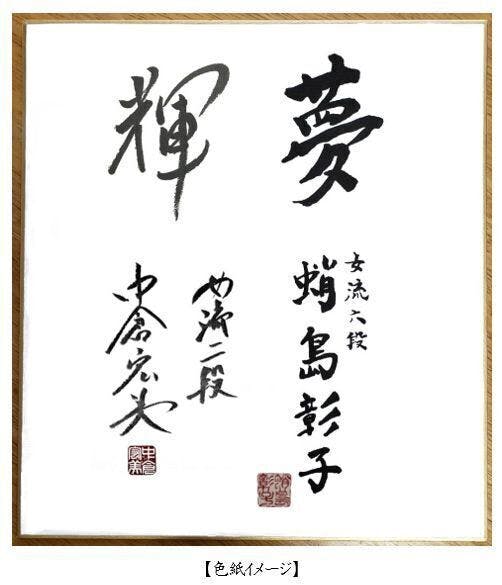 夢
女流六段
蛸島彰子
輝
女流二段
中倉宏美
【色紙イメージ】